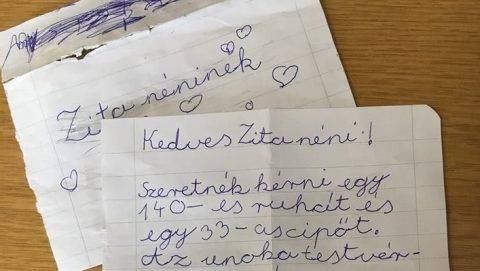 Zita néninek
Kedves Zita néni!
Szeretnék kérni egy
140-es ruhát és
egy 33-as cipőt.
Az unokatestvér-